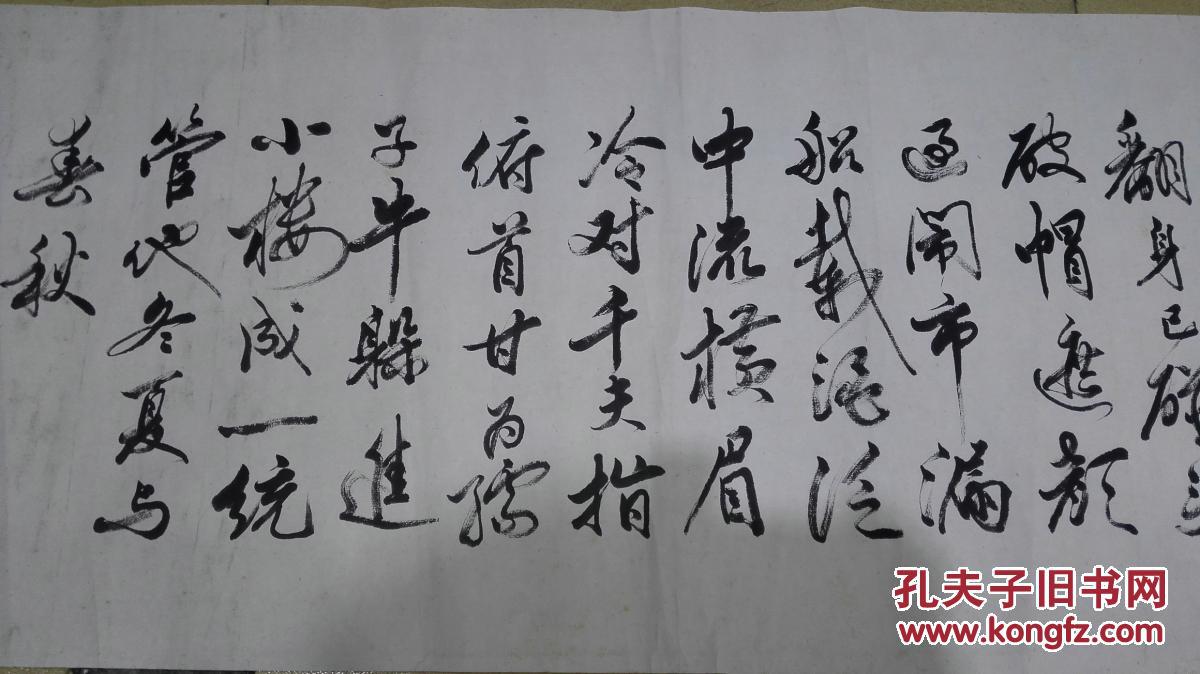 翻身已碰
破帽遮颜
过闹市漏
船载酒泛
中流横眉
冷对千夫指
俯首甘为孺
子牛躲进
小楼成一统
管他冬夏与
春秋
孔夫子旧书网
www.kongfz.com